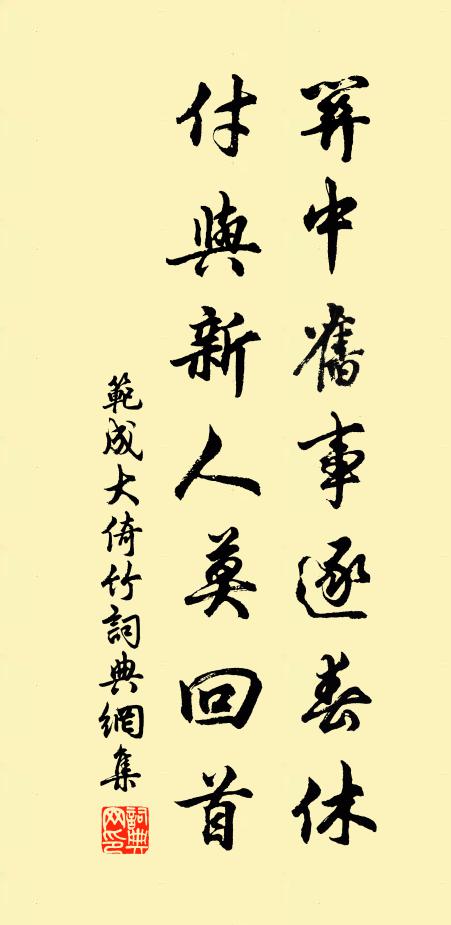 笄中舊事逐春休
付與新人莫回首
範成大倚竹詞典網集
詞典
网印